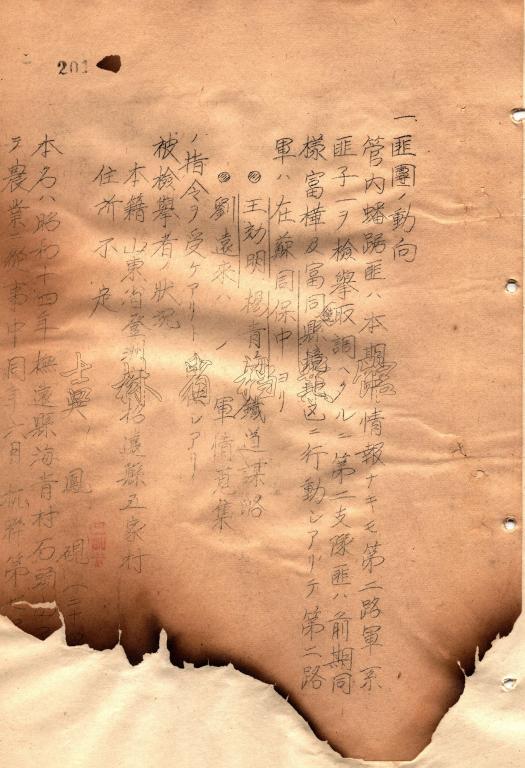 201
一 匪團ノ動向
管内蟠踞匪ハ本期 情報ナキモ第二路軍系
匪子一ヲ檢擧取調 タルニ第二支隊匪ハ前期同
樣富樺及富同縣境地区ニ行動シアリテ第二路
軍ハ在蘇同保中 ヨリ
◎王効明楊青海 鐵道謀略
◎劉遠來ハ 軍情蒐集
ノ指令ヲ受ケアリ シアリ
被檢擧者ノ狀況
本籍 山東省登洲 招遠縣五家村
住所不定
鳳硯
本名ハ昭和十四年撫遠縣海青村石頭
ヲ農業 中同年六月抗聯第